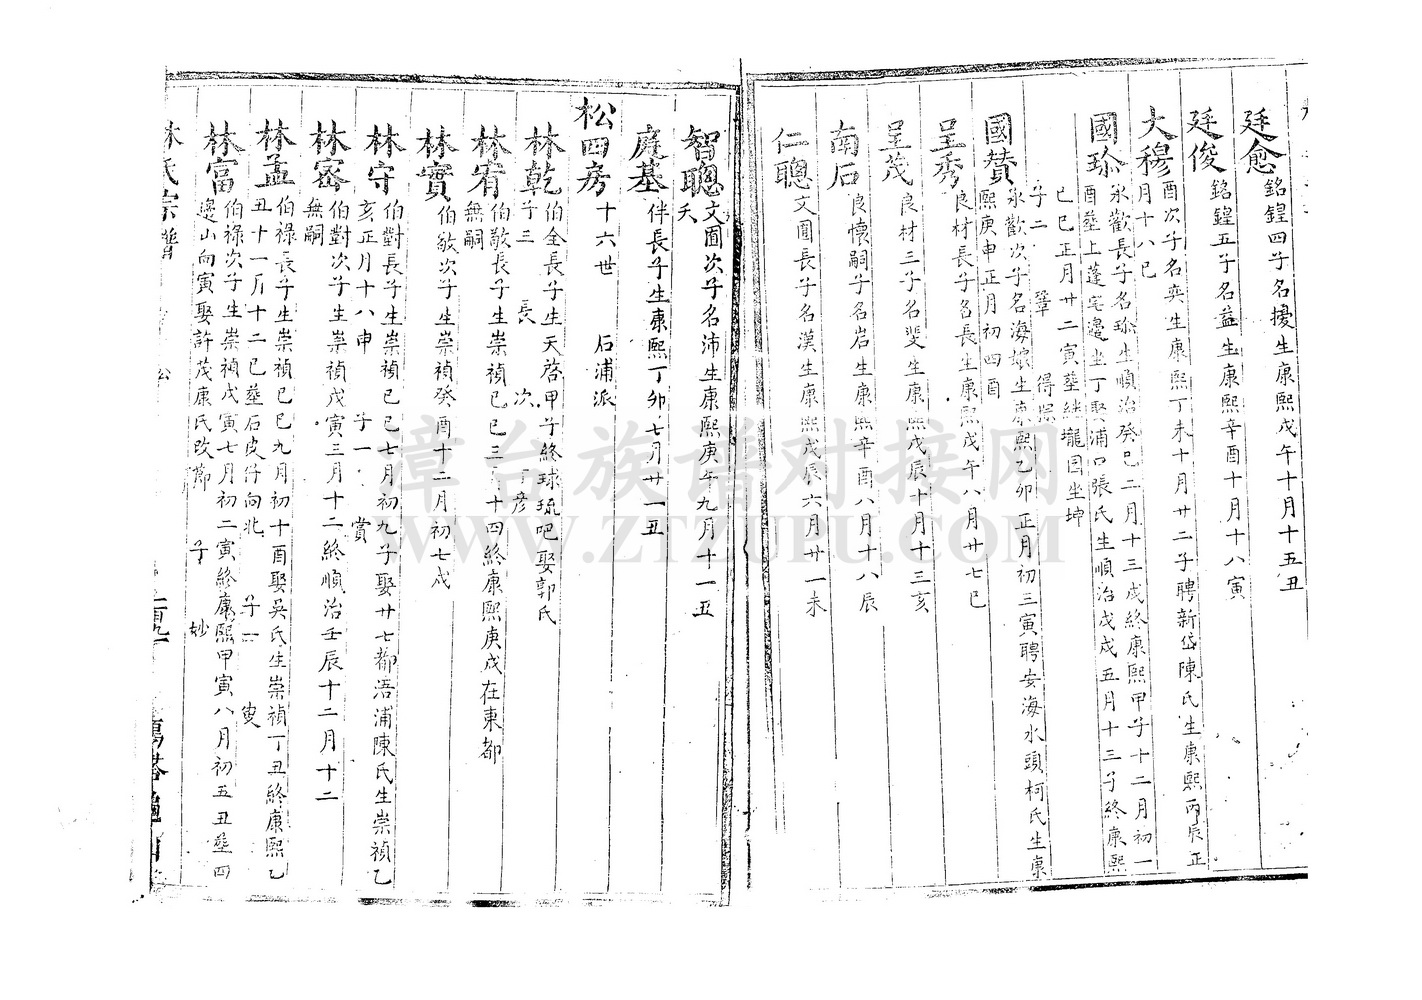 廷愈 銘鍠四子名擾生康熙戊午十月十五丑
廷俊 銘鍠五子名益生康熙辛酉十月十八寅
大穆 酉次子名奕生康熙丁未十月廿二子聘新岱陳氏生康熙丙辰正
月十八巳
國珎 永歡長子名珎生順治癸巳二月十三戌終康熙甲子十二月初一
酉塟上蓬宅邊坐丁娶浦口張氏生順治戊戌五月十三子終康熙
己巳正月廿二寅塟 壠園坐坤
子二 肇 得
國賛 永歡次子名海 生康熙乙卯正月初三寅聘安海水頭柯氏生康
熙庚申正月初四酉
呈秀 良材長子名長生康熙戊午八月廿七巳
呈茂 良材三子名斐生康熙戊辰十月十三亥
南石 良懷嗣子名岩生康熙辛酉八月十八辰
仁聰 文圃長子名漢生康熙戊辰六月廿一未
智聰 文圃次子名沛生康熙庚午九月十一丑
夭
庭基 伴長子生康熙丁卯七月廿一丑
松四房 十六世 石浦派
林乾 伯全長子生天啓甲子終球琉吧娶郭氏
子三 長 次 彦
林宥 伯敬長子生崇禎己巳三 十四終康熙庚戌在東都
無嗣
林實 伯敬次子生崇禎癸酉十二月初七戌
林守 伯對長子生崇禎己巳七月初九子娶廿七都浯浦陳氏生崇禎乙
亥正月十八申 子一 賞
林密 伯對次子生崇禎戊寅三月十二終順治壬辰十二月十二
無嗣
林孟 伯祿長子生崇禎己巳九月初十酉娶吳氏生崇禎丁丑終康熙乙
丑十一月十二巳塟石皮仔向北 子一 叟
林富 伯祿次子生崇禎戊寅七月初二寅終康熙甲寅八月初五丑塟四
邊山向寅娶許茂康氏改節 子 妙
林氏宗譜 松
漳台族谱对接网
WWW.ZTZUPU.COM